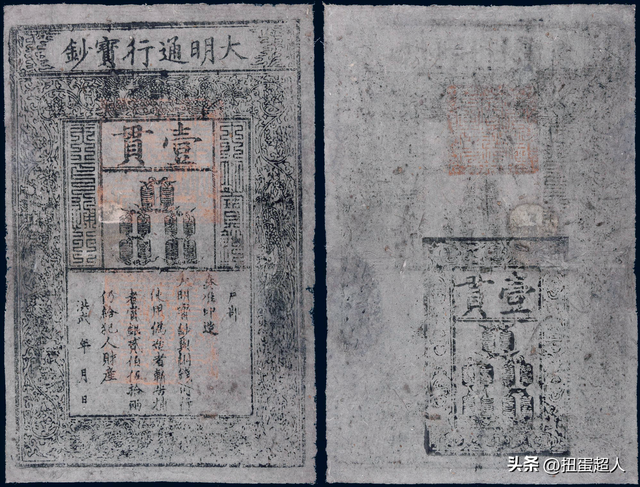 大明通行寳鈔
壹貫
戶部
奏准印造
大明寳鈔與銅錢通行
使用偽造者斬告捕
者賞銀貳伯伍拾兩
仍給犯人財產
洪武 年 月 日
壹貫
头条 @扭蛋超人